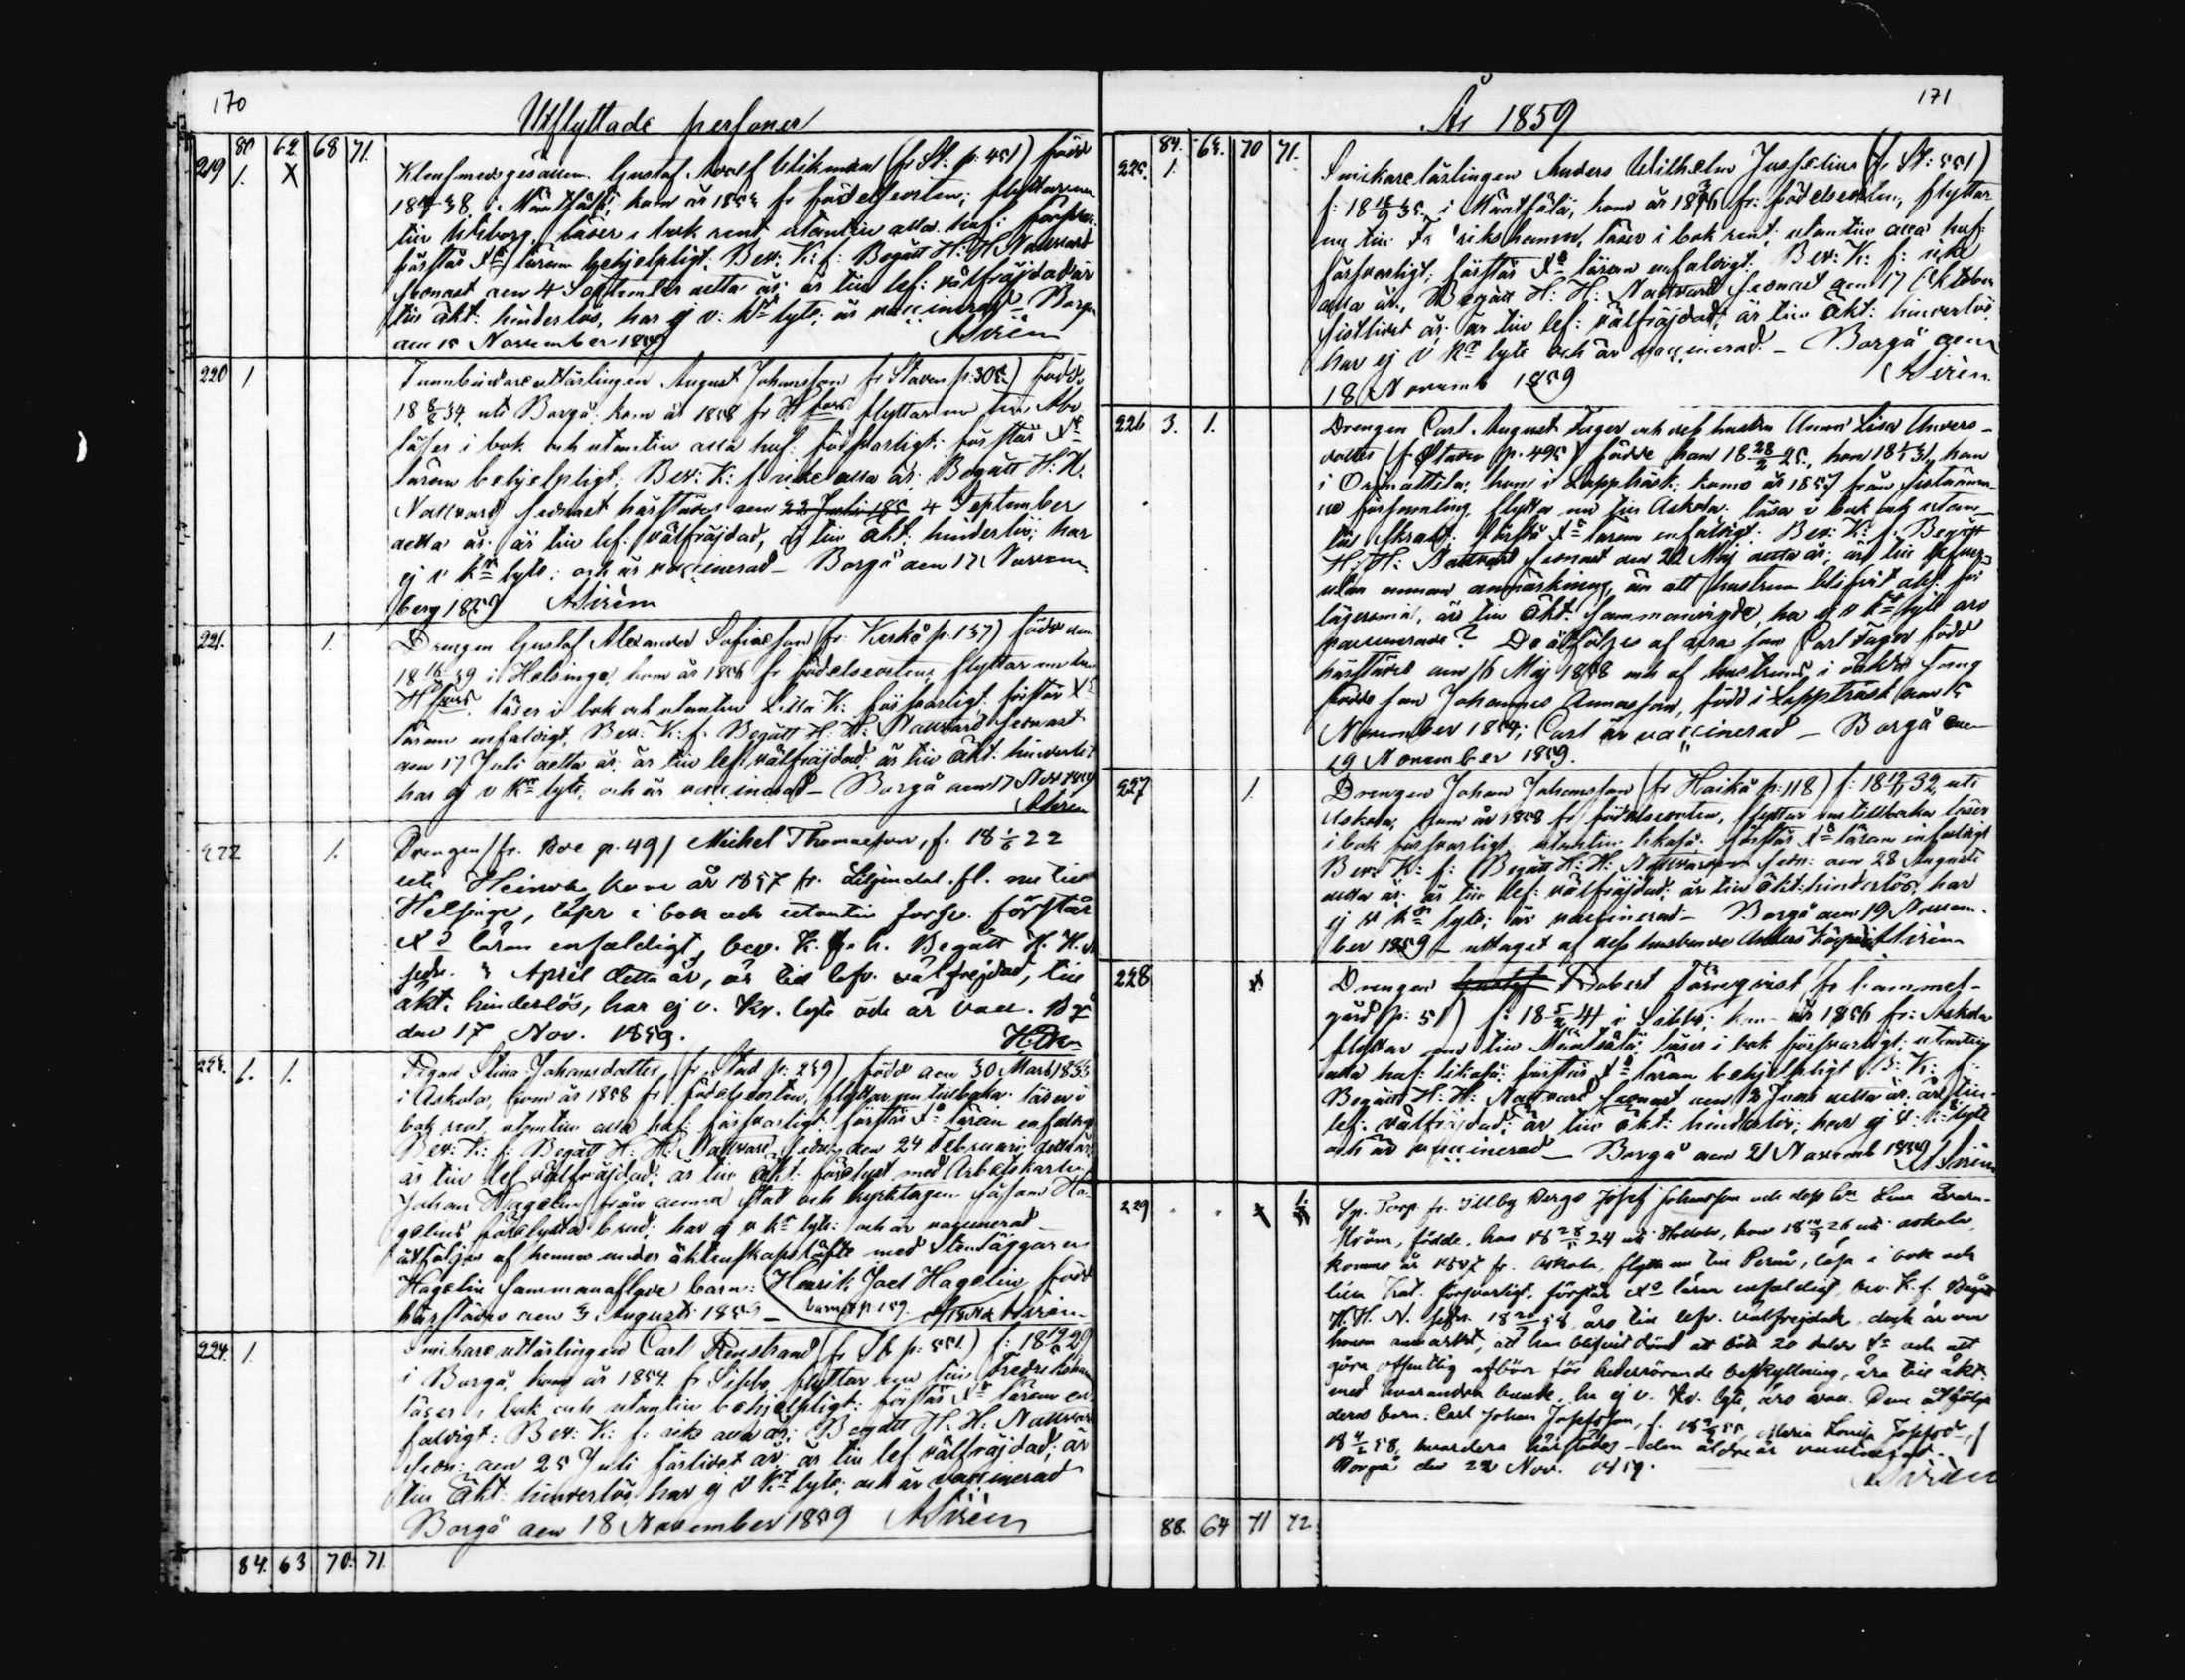 170
Utflyttade personer
80 62. 68 71.
219 1. X Klensmedsgesällen Gustaf Adolf Wikman (fr St: p: 451) född
38 i Mäntsälä; kom år 185 fr födelseorten; flyttar nu
till Wiborg, läser i bok rent utantill alla huf:
förstår Xs läran behjelpligt; Bev: K: f: Begått H: H. Nattvard
sednast den 4 September detta år; är till lef: välfräjdad är
till äkt: hinderlös, har ej v: kr lyte; är vaccinerad – Borgå
den 15 November 1859 ASirèn
220 1 Tunnbindareutlärlingen August Johansson fr Staden p: 305) född
18 8/8 34 uti Borgå; kom år 1858 fr Hfors flyttar nu till Åbo
läser i bok och utantill alla huf: försvarligt: förstår Xs
läran behjelpligt; Bev: K: f alla år: Begått H: H.
Nattvard sednast härstädes den 22 Juli 185 4 September
detta år. är till lef: välfräjdad, är till äkt: hinderlös; har
ej v kr lyte; och är vaccinerad – Borgå den 17 Novem-
berg 1859 ASirèn
221. 1. Drengen Gustaf Alexander Sofiaeson (fr: Kerkå p: 137) född den
18 16/ 39 i Helsinge, kom år 1856 fr födelseorten, flyttar nu till
Hfors. läser i bok och utantill Lilla K: försvarligt, förstår Xs
läran enfaldigt, Bev: K: f. Begått H: H: Nattvard sednast
den 17 Juli detta år; är till lef: välfräjdad; är till äkt: hinderlös
har ej v kr lyte; och är vaccinerad – Borgå den 17 Nov 1859
ASirèn
222 1. Drengen (fr. Boe p. 49) Michel Thomasson, f. 18 1/6 22
uti Heinola, kom år 1857 fr. Liljendal. fl. nu till
Helsinge, läser i bok och utantill försv. förstår
Xs läran enfaldigt, bev. K. f. Begått H. H. N
sedn. 3 April detta år, är till lefv. välfrejdad, till
äkt: hinderlös, har ej v. kr. lyte och är vacc. Bgå
den 17 Nov. 1859.
223. 1. 1. Pigan Stina Johansdotter, fr Stad p: 239) född den 30 Mars 1833
i Askola, kom år 1858 fr födelseorten, flyttar nu tillbaka läser i
bok rent, utantill alla huf: försvarligt: förstår Xs läran enfaldigt
Bev: K: f: Begått H: H: Nattvard sedn: den 24 Februari detta år
är till lef välfräjdad; är till äkt: förelyst med Arbetskarlen
Johan Hagelin från denna stad och kyrktagen såsom Ha-
gelins förelysta brud; har ej v kr lyte: och är vaccinerad –
åtföljes af hennes under äktenskapslöfte med Stenläggaren
Hagelin sammanaflade barn: Henrik Joel Hagelin född
härstädes den 3 Augusti 185 – barnb: p. 159. Sirèn
224. 1. Snickareutlärlingen Carl Renstrand (fr St p: 551.) f: 18 29
i Borgå, kom år 1854 fr Sibbo, flyttar nu till Fredrikshamn
läser i bok och utantill behjelpligt: förstår Xs läran en-
faldigt: Bev: K: f: alla år; Begått H: H: Nattvard
sedn: den 25 Juli sistlidet år; är till lef välfräjdad; är
till äkt: hinderlös, har ej v kr lyte: och är vaccinerad
Borgå den 18 November 1859 ASirèn
84. 63 70. 71.
171
År 1859
84. 63. 70 71.
225. 1. Snickarelärlingen Anders Wilhelm Jusselius (fr St: 551)
f: 18 35 i Mäntsälä, kom år 1856 fr: födelseorten, flyttar
nu till Fredrikshamn, läser i bok rent, utantill alla huf:
försvarligt, förstår Xs läran enfaldigt: Bev: K: f: icke
alla år, Begått H: H: Nattvard sednast den 17 Oktober
sistlidet år; är till lef: välfräjdad, är till äkt: hinderlös
har ej v kr lyte och är vaccinerad. – Borgå den
18 Novemb 1859 ASirèn.
226 3. 1. Drengen Carl August Fager och dess hustru Anna Lisa Anders-
dotter (fr Staden p. 495) födde han 18 28/2 25, hon 18 1/1 31, han
i Orimattila, hon i Lappträsk; komo år 1857 från sistnämn-
de församling, flytta nu till Askola. läsa i bok och utan-
till skralt; förstå Xs läran enfaldigt: Bev: K: f. Begått
H: H: Nattvard sednast den 22 Maj detta år; är till lefver-
utan annan anmärkning, än att hustrun blifvit
lägersmål, är till äkt. sammanvigde, ha ej v kr lyte äro
vaccinerade? De åtföljes af deras son Carl Fager född
härstädes den 16 Maj 1858 och af hustruns i oäkta säng
födde son Johannes Annasson, född i Lappträsk den 5
November 1854; Carl är vaccinerad – Borgå den
19 November 1859.
227 1. Drengen Johan Johansson (fr Haikå p: 118) f: 18 32 uti
Askola, kom år 1858 fr födelseorten, flyttar nu tillbaka läser
i bok försvarligt, utantill likaså. förstår Xs läran enfaldigt
Bev: K: f: Begått H: H: Nattvarden sedn: den 28 Augusti
detta år; är till lef: välfräjdad; är till äkt: hinderlös, har
ej v kr lyte; är vaccinerad – Borgå den 19 Novem-
ber 1859 – uttaget af dess husbonde Anders Sirèn
228 Drengen Gustaf Robert Törnqvist, fr Hammel-
gård p: 51) f: 18 5/2 41 i Sibbo; kom år 1856 fr: Askola
flyttar nu till Mäntsälä; läser i bok försvarligt: utantill
alla huf: likaså: förstår Xs läran behjelpligt B: K: f:
Begått H: H: Nattvard sednast den 12 Juni detta år. är till
lef: välfräjdad; är till äkt: hinderlös; har ej v. kr lyte
och är vaccinerad – Borgå den 21 Novemb 1859 ASirèn
229 Sp. Torp. fr. Illby Bergs Josef Johansson och dess hu Lena
ström, födde, han 18 28/5 24 uti Hollola, hon 18 26 uti Askola,
komne år 1857 fr. Askola, flytta nu till Pernå, läsa i bok och
lilla Kat. försvarligt. förstår Xs läran enfaldigt, bev. K. f. Begått
H. H. N. sedn. 18 58, äro till lefv. välfrejdade, dock är om
honom anmärkt, att han blifvit dömd att böta 20 daler och att
göra offentlig afbön för hederrörande beskyllning, äro till äkt.
med hvarandra bundne, ha ej v. kr. lyte, äro vacc. Dem åtfölja
deras barn: Carl Johan Josefsson, f. 18 55, Maria Lovisa Josefsd. f
18 4/2 58, hvardera härstädes – den äldre är vaccinerad.
Borgå den 22 Nov. 1859. ASirèn
88. 64 71 72